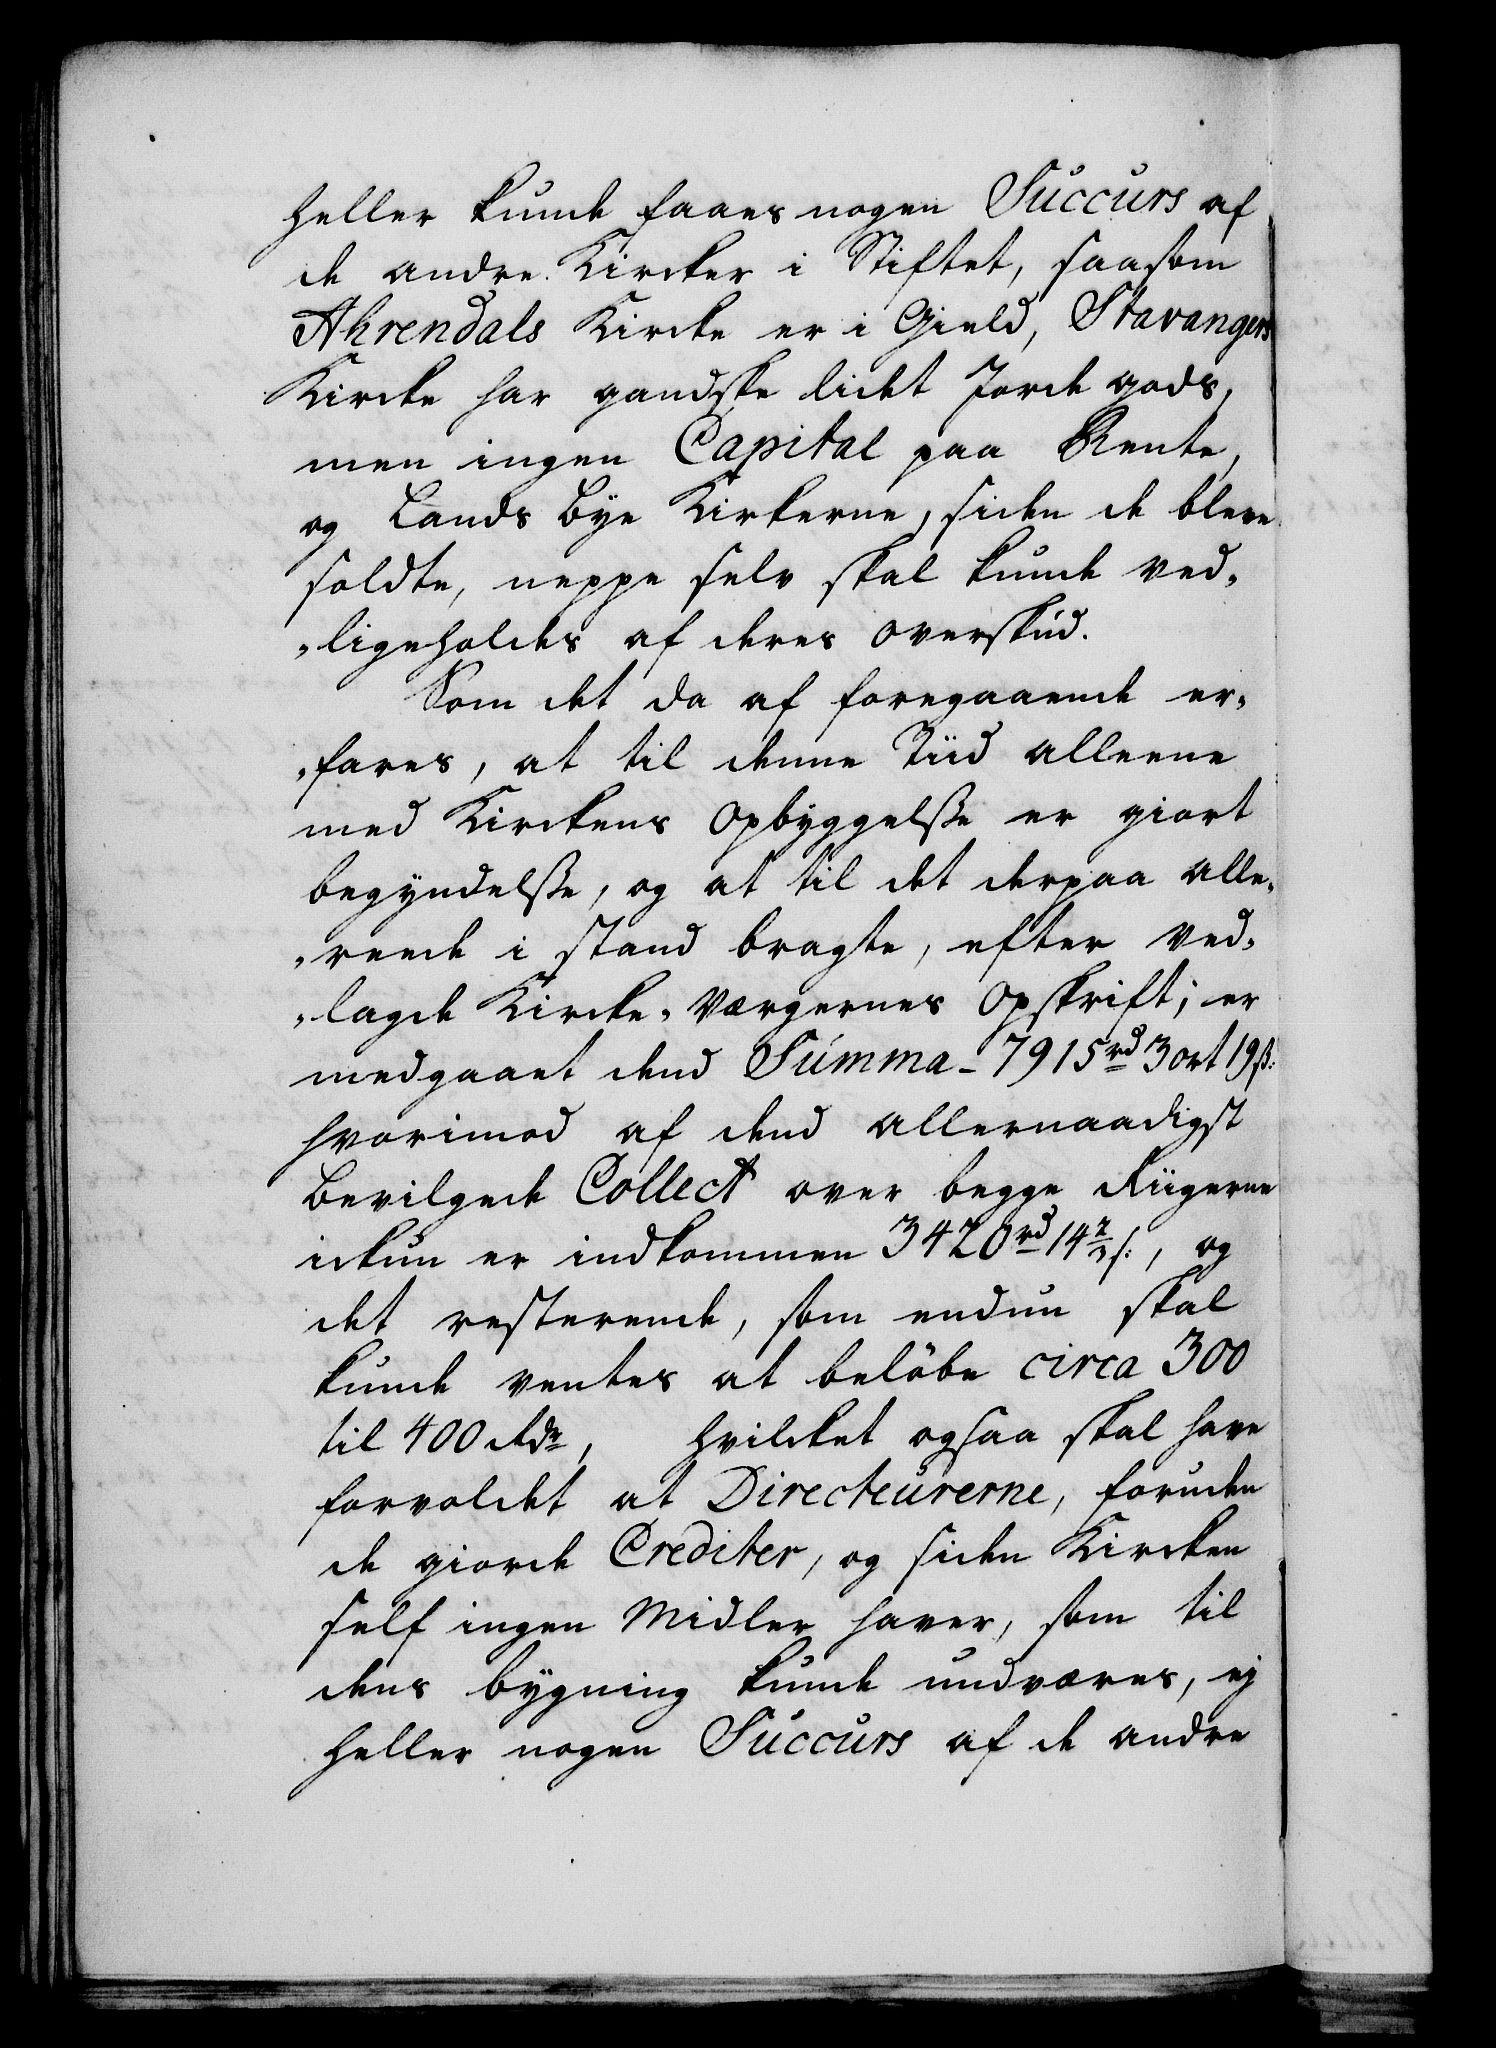 heller kunde faaes nogen Succurs af
de andre Kircker i Stiftet, saasom
Ahrendals Kircke er i Gield, Stavangers
Kircke har gandske lidet Jorde gods,
men ingen Capital paa Rente,
og Lands Bye Kirkerne, siden de bleve
soldte, neppe selv skal kunde ved-
-ligeholdes af deres overskud.
Som det da af foregaaende er-
-fares, at til denne Tiid alleene
med Kirckens Opbyggelsse er giort
begyndelsse, og at til det derpaa alle-
-reede i stand bragte, efter ved-
-lagde Kircke-Værgernes Opskrift; er
medgaaet dend Summa - 7915 rd 3 ort 19 ß:
hvorimod af dend allernaadigst
bevilgede Collect over begge Riigerne
ickun er indkommen 3420 rd 14 2/3 s:, og
det resterende, som endnu skal
kunde ventes at beløbe circa 300
til 400 Rdr, hvilcket ogsaa skal have
forvoldet at Directeurerne, foruden
de giorde Crediter, og siden Kircken
self ingen Midler haver, som til
dens bygning kunde undværes, ej
heller nogen Succurs af de andre